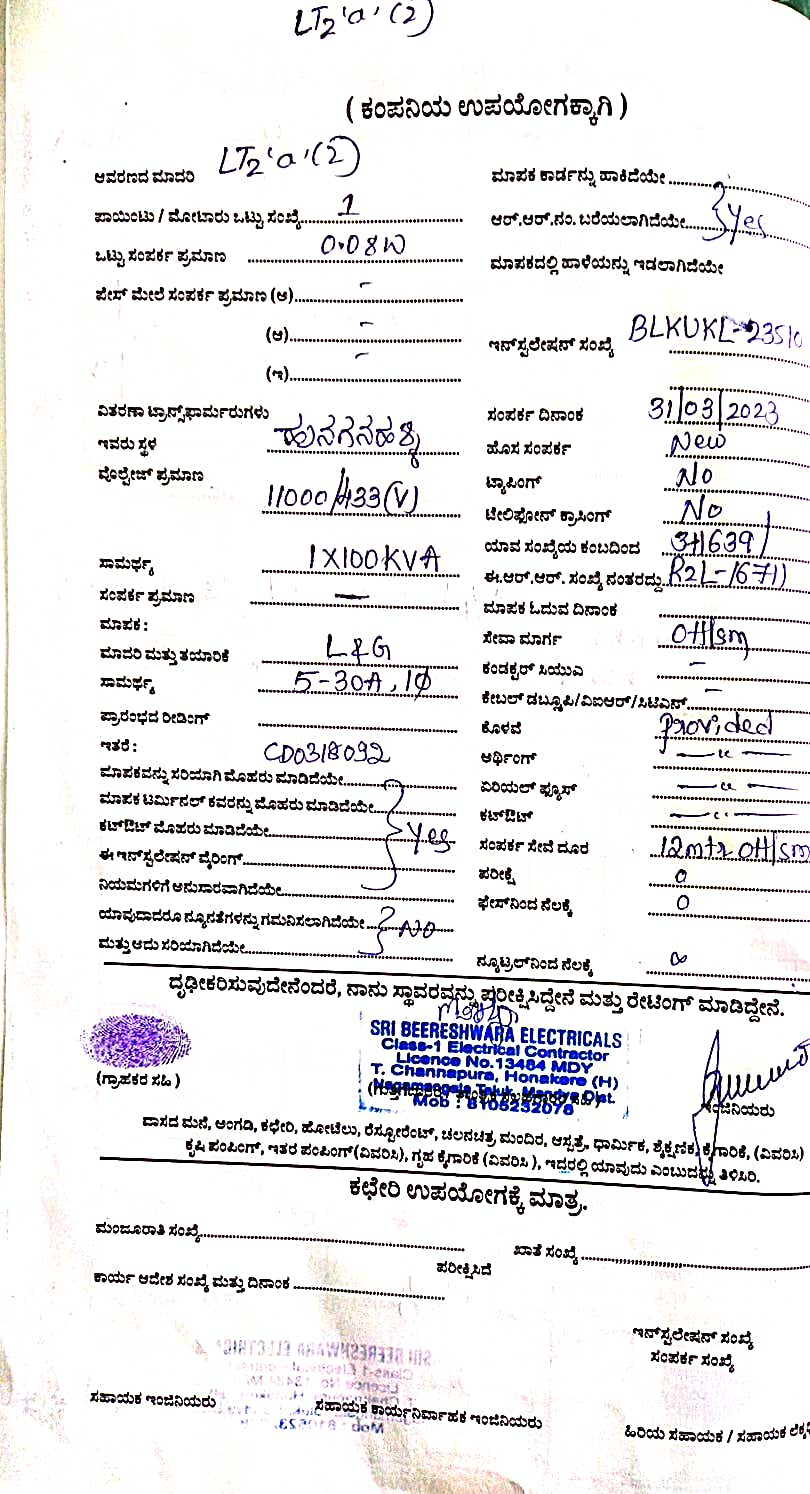 LT2 'a' (2)
( ಕಂಪನಿಯ ಉಪಯೋಗಕ್ಕಾಗಿ )
ಆವರಣದ ಮಾದರಿ LT2 'a' (2)
ಪಾಯಿಂಟು / ಮೋಟಾರು ಒಟ್ಟು ಸಂಖ್ಯೆ 1
ಒಟ್ಟು ಸಂಪರ್ಕ ಪ್ರಮಾಣ 0.08W
ಪೇಸ್ ಮೇಲೆ ಸಂಪರ್ಕ ಪ್ರಮಾಣ (ಅ) -
(ಆ) -
(ಇ) -
ವಿತರಣಾ ಟ್ರಾನ್ಸ್‌ಫಾರ್ಮರುಗಳು
ಇವರು ಸ್ಥಳ ಹುನಗನಹಳ್ಳಿ
ವೊಲ್ಟೇಜ್ ಪ್ರಮಾಣ
11000/433(V)
ಸಾಮರ್ಥ್ಯ 1X100KVA
ಸಂಪರ್ಕ ಪ್ರಮಾಣ —
ಮಾಪಕ :
ಮಾದರಿ ಮತ್ತು ತಯಾರಿಕೆ L&G
ಸಾಮರ್ಥ್ಯ 5-30A, 1Φ
ಪ್ರಾರಂಭದ ರೀಡಿಂಗ್
ಇತರೆ : CD0318092
ಮಾಪಕವನ್ನು ಸರಿಯಾಗಿ ಮೊಹರು ಮಾಡಿದೆಯೇ
ಮಾಪಕ ಟರ್ಮಿನಲ್ ಕವರನ್ನು ಮೊಹರು ಮಾಡಿದೆಯೇ
ಕಟ್‌ಔಟ್ ಮೊಹರು ಮಾಡಿದೆಯೇ Yes
ಈ ಇನ್‌ಸ್ಟಲೇಷನ್ ವೈರಿಂಗ್
ನಿಯಮಗಳಿಗೆ ಅನುಸಾರವಾಗಿದೆಯೇ
ಯಾವುದಾದರೂ ನ್ಯೂನತೆಗಳನ್ನು ಗಮನಿಸಲಾಗಿದೆಯೇ NO
ಮತ್ತು ಅದು ಸರಿಯಾಗಿದೆಯೇ
ಮಾಪಕ ಕಾರ್ಡನ್ನು ಹಾಕಿದೆಯೇ
ಆರ್.ಆರ್.ನಂ. ಬರೆಯಲಾಗಿದೆಯೇ Yes
ಮಾಪಕದಲ್ಲಿ ಹಾಳೆಯನ್ನು ಇಡಲಾಗಿದೆಯೇ
ಇನ್‌ಸ್ಟಲೇಷನ್ ಸಂಖ್ಯೆ BLKUKL-23510
ಸಂಪರ್ಕ ದಿನಾಂಕ 31/03/2023
ಹೊಸ ಸಂಪರ್ಕ New
ಟ್ಯಾಪಿಂಗ್ No
ಟೇಲಿಫೋನ್ ಕ್ರಾಸಿಂಗ್ No
ಯಾವ ಸಂಖ್ಯೆಯ ಕಂಬದಿಂದ
ಈ.ಆರ್.ಆರ್. ಸಂಖ್ಯೆ ನಂತರದ್ದು R2L-1671)
ಮಾಪಕ ಓದುವ ದಿನಾಂಕ
ಸೇವಾ ಮಾರ್ಗ OH/sm
ಕಂಡಕ್ಟರ್ ಸಿಯುವಿ -
ಕೇಬಲ್ ಡಬ್ಲೂಪಿ/ವಿಐಆರ್/ಸಿಟಿಎಸ್ -
ಕೊಳವೆ Provided
ಆರ್ಥಿಂಗ್ — u —
ಏರಿಯಲ್ ಫ್ಯೂಸ್ — u —
ಕಟ್‌ಔಟ್ — u —
ಸಂಪರ್ಕ ಸೇವೆ ದೂರ 12mtr OH/sm
ಪರೀಕ್ಷೆ 0
ಫೇಸ್‌ನಿಂದ ನೆಲಕ್ಕೆ 0
ನ್ಯೂಟ್ರಲ್‌ನಿಂದ ನೆಲಕ್ಕೆ ∞
ದೃಢೀಕರಿಸುವುದೇನೆಂದರೆ, ನಾನು ಸ್ಥಾವರವನ್ನು ಪರೀಕ್ಷಿಸಿದ್ದೇನೆ ಮತ್ತು ರೇಟಿಂಗ್ ಮಾಡಿದ್ದೇನೆ.
SRI BEERESHWARA ELECTRICALS
Class-1 Electrical Contractor
Licence No.13484 MDY
T. Channapura, Honakere (H)
Nagamangala Taluk, Mandya Dist.
Mob : 8105232078
(ಗ್ರಾಹಕರ ಸಹಿ )
ಇಂಜಿನಿಯರು
ವಾಸದ ಮನೆ, ಅಂಗಡಿ, ಕಛೇರಿ, ಹೋಟೆಲು, ರೆಸ್ಟೋರೆಂಟ್, ಚಲನಚಿತ್ರ ಮಂದಿರ, ಆಸ್ಪತ್ರೆ, ಧಾರ್ಮಿಕ, ಶೈಕ್ಷಣಿಕ, ಕೈಗಾರಿಕೆ, (ವಿವರಿಸಿ)
ಕೃಷಿ ಪಂಪಿಂಗ್, ಇತರ ಪಂಪಿಂಗ್(ವಿವರಿಸಿ), ಗೃಹ ಕೈಗಾರಿಕೆ (ವಿವರಿಸಿ ), ಇದ್ದರಲ್ಲಿ ಯಾವುದು ಎಂಬುದನ್ನು ತಿಳಿಸಿರಿ.
ಕಛೇರಿ ಉಪಯೋಗಕ್ಕೆ ಮಾತ್ರ.
ಮಂಜೂರಾತಿ ಸಂಖ್ಯೆ
ಖಾತೆ ಸಂಖ್ಯೆ
ಪರೀಕ್ಷಿಸಿದೆ
ಕಾರ್ಯ ಆದೇಶ ಸಂಖ್ಯೆ ಮತ್ತು ದಿನಾಂಕ
ಇನ್‌ಸ್ಟಲೇಷನ್ ಸಂಖ್ಯೆ
ಸಂಪರ್ಕ ಸಂಖ್ಯೆ
ಸಹಾಯಕ ಇಂಜಿನಿಯರು
ಸಹಾಯಕ ಕಾರ್ಯನಿರ್ವಾಹಕ ಇಂಜಿನಿಯರು
ಹಿರಿಯ ಸಹಾಯಕ / ಸಹಾಯಕ